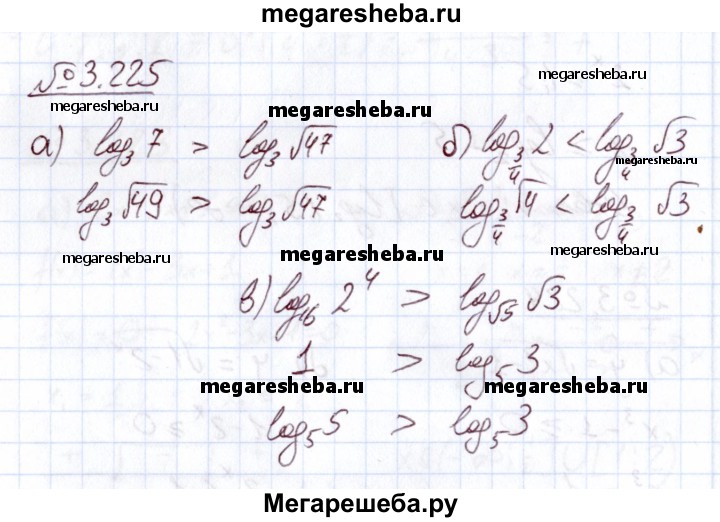 megaresheba.ru
№3.225
megaresheba.ru
megaresheba.ru
megaresheba.ru
а) log₃ 7 > log₃ √47
б) log_{3/4} 2 < log_{3/4} √3
megaresheba.ru
log₃ √49 > log₃ √47
log_{3/4} √4 < log_{3/4} √3.
megaresheba.ru
megaresheba.ru
megaresheba.ru
в) log₁₆ 2⁴ > log_{√5} √3
1 > log₅ 3
megaresheba.ru
megaresheba.ru
log₅ 5 > log₅ 3
Мегарешеба.ру